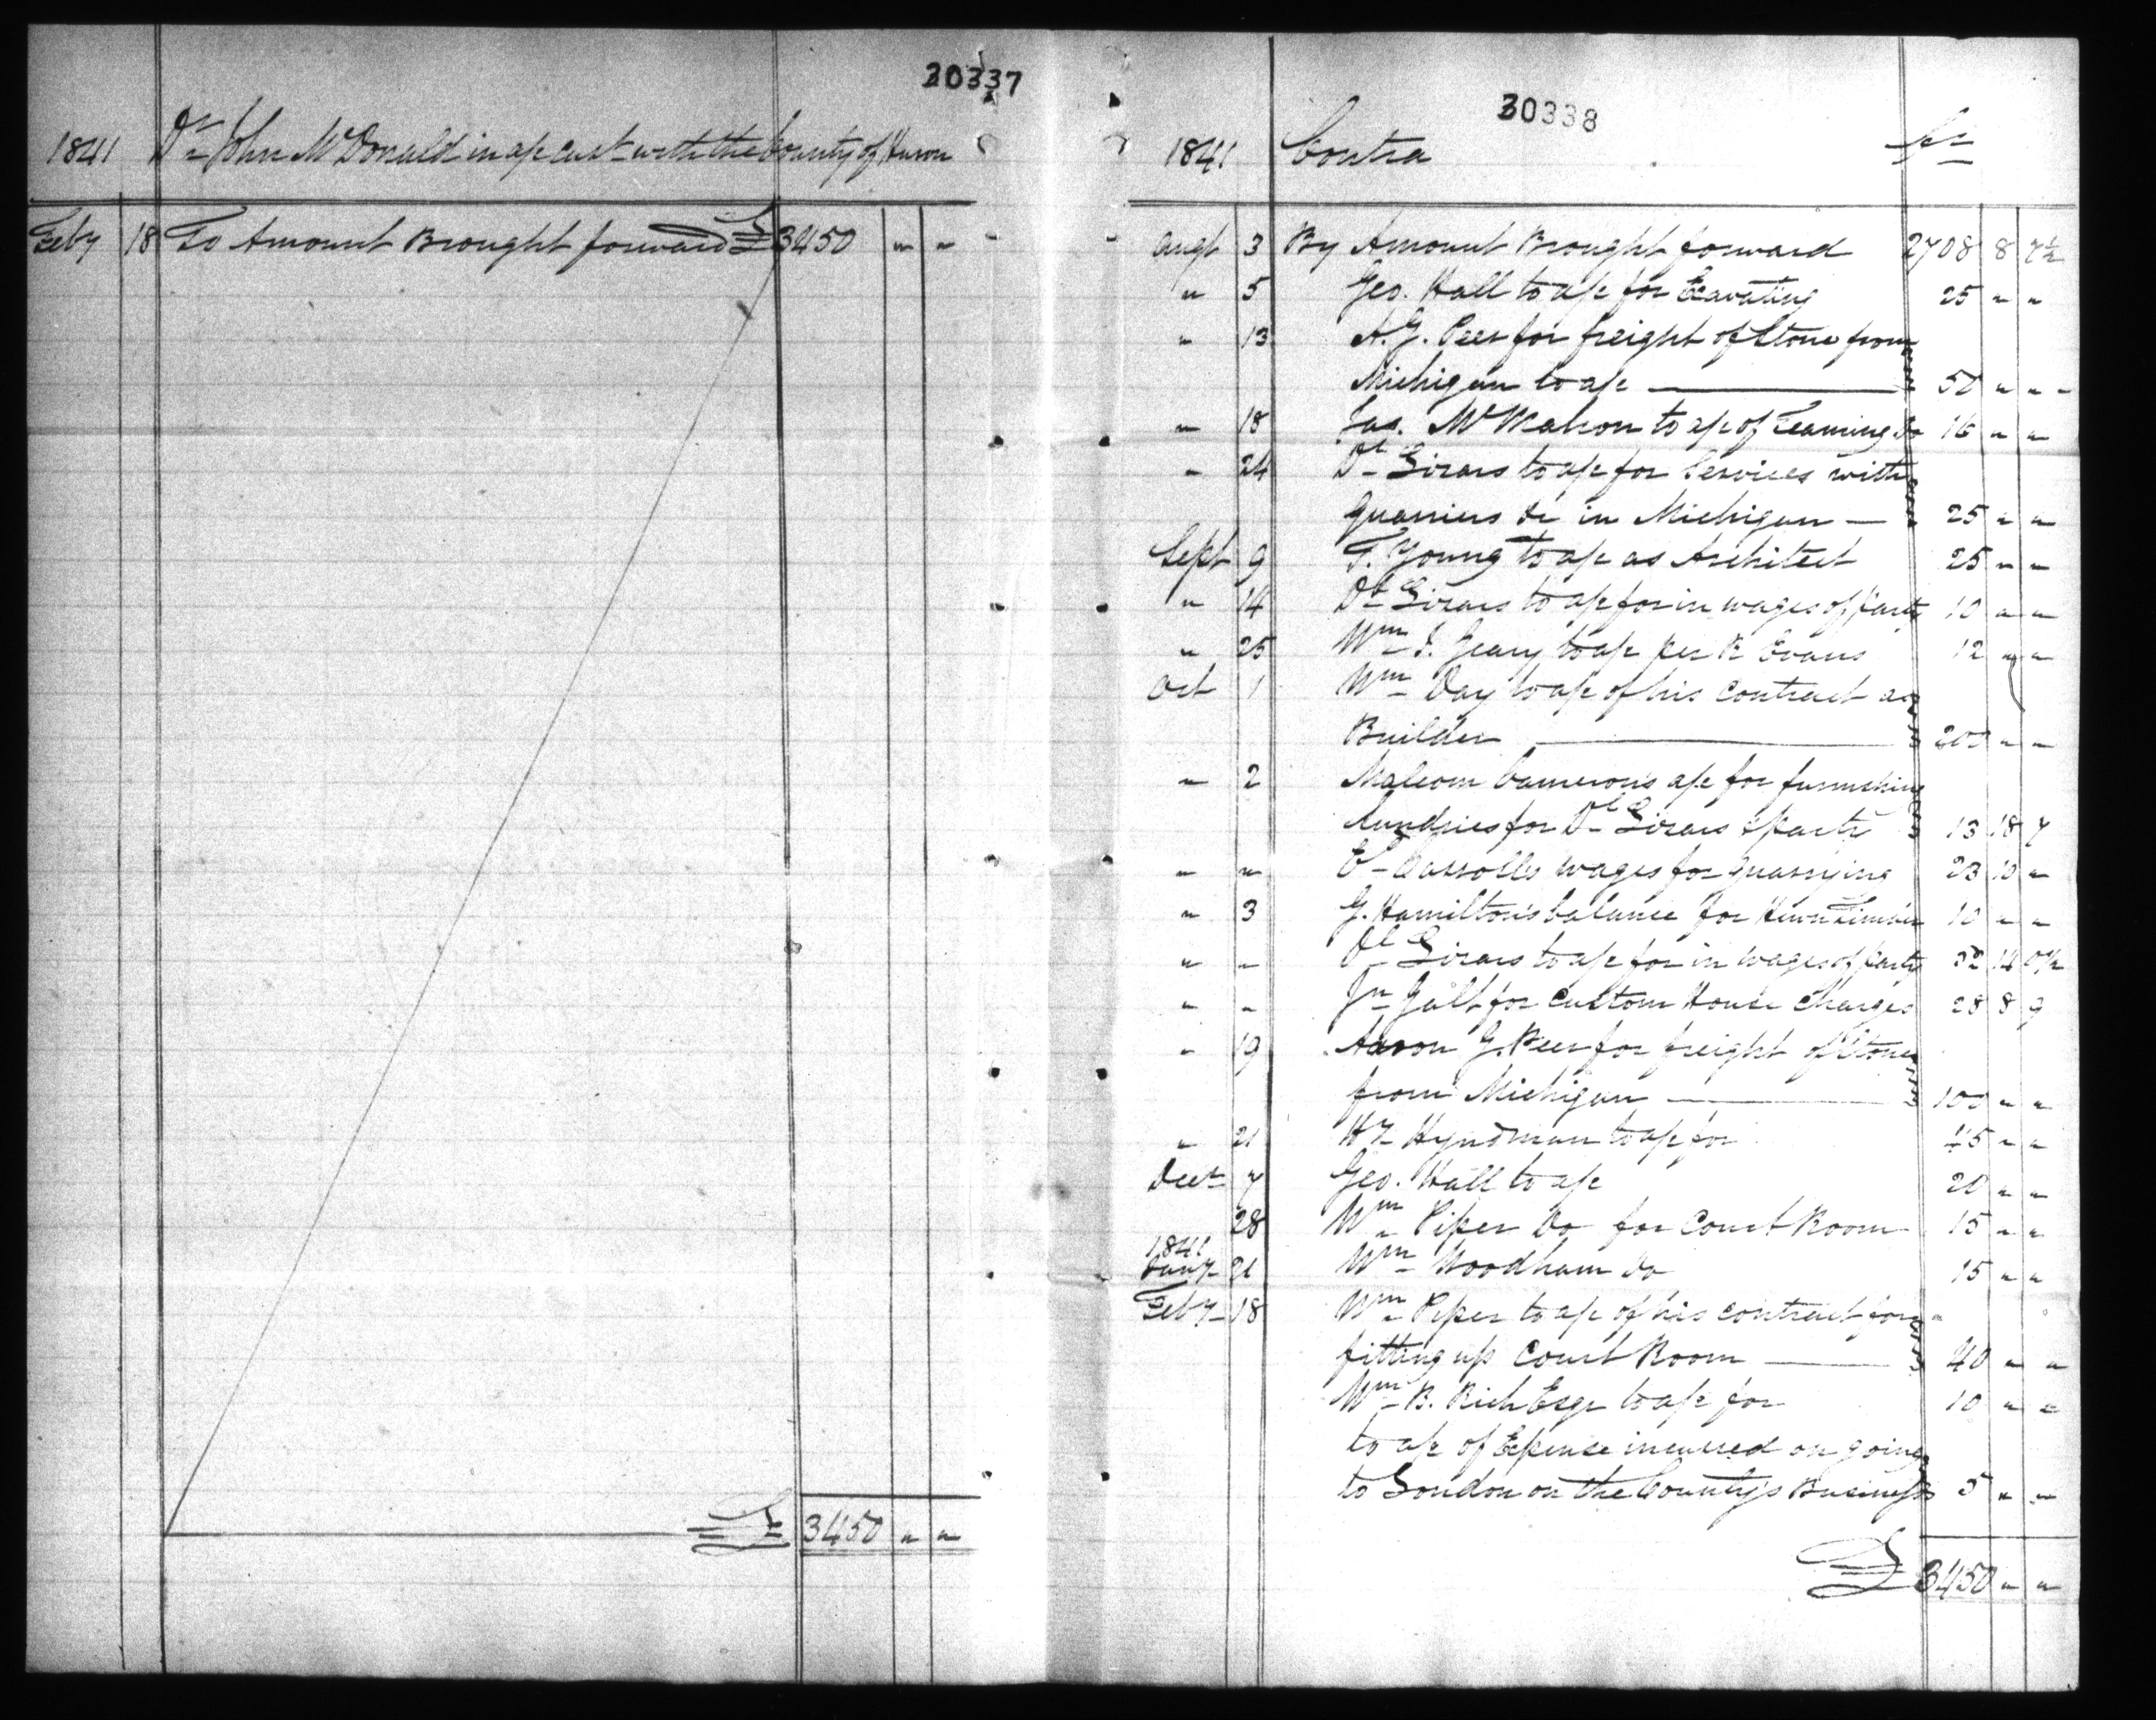 30337
1841 Dr John McDonald in a/c curt with the County of Huron
Feby 18 To Amount Brought forward £ 3450 " "
£ 3450 " "
30338
1841 Contra Cr
augt 3 By Amount Brought forward 2708 8 7½
" 5 Geo. Hall to a/c for Excavating 25 " "
" 13 A. G. Peer for freight of Stone from
Michigan to a/c 50 " "
" 18 Jas. McMahon to a/c of Teaming Do 16 " "
" 24 Dl Lizars to a/c for Services with
Quarriers &c in Michigan 25 " "
Sept 9 T. Young to a/c as Architect 25 " "
" 14 Dl Lizars to a/c for in wages of party 10 " "
" 25 Wm I. Geary to a/c per R Evans 12 " "
Oct 1 Wm Day to a/c of his contract as
Builder 200 " "
" 2 Malcom Camerons a/c for furnishing
Sundries for Dl Lizars & party 13 18 7
" " Carrolls wages for quarrying 23 10 "
" 3 G. Hamilton's balance for Hewn Timber 10 " "
" " Dl Lizars to a/c for in wages of party 14 0½
" " Jn Galt for Custom House Charges 28 8 9
" 19 Aaron G. Peer for freight of Stone
from Michigan 100 " "
" 21 Hy Hyndman to a/c for 45 " "
Decr 7 Geo. Hall to a/c 20 " "
28 Wm Piper Do for Court Room 15 " "
1841
Jany 21 Wm Woodham Do 15 " "
Feby 18 Wm Piper to a/c of his contract for
fitting up Court Room 40 " "
Wm B. Rich Esqr to a/c for 10 " "
to a/c of Expense incurred on going
to London on the County's Business 5 " "
£ 3450 " "